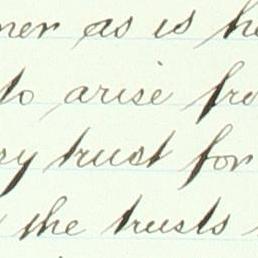 ner as is he
to arise fro
ry trust for
the trusts